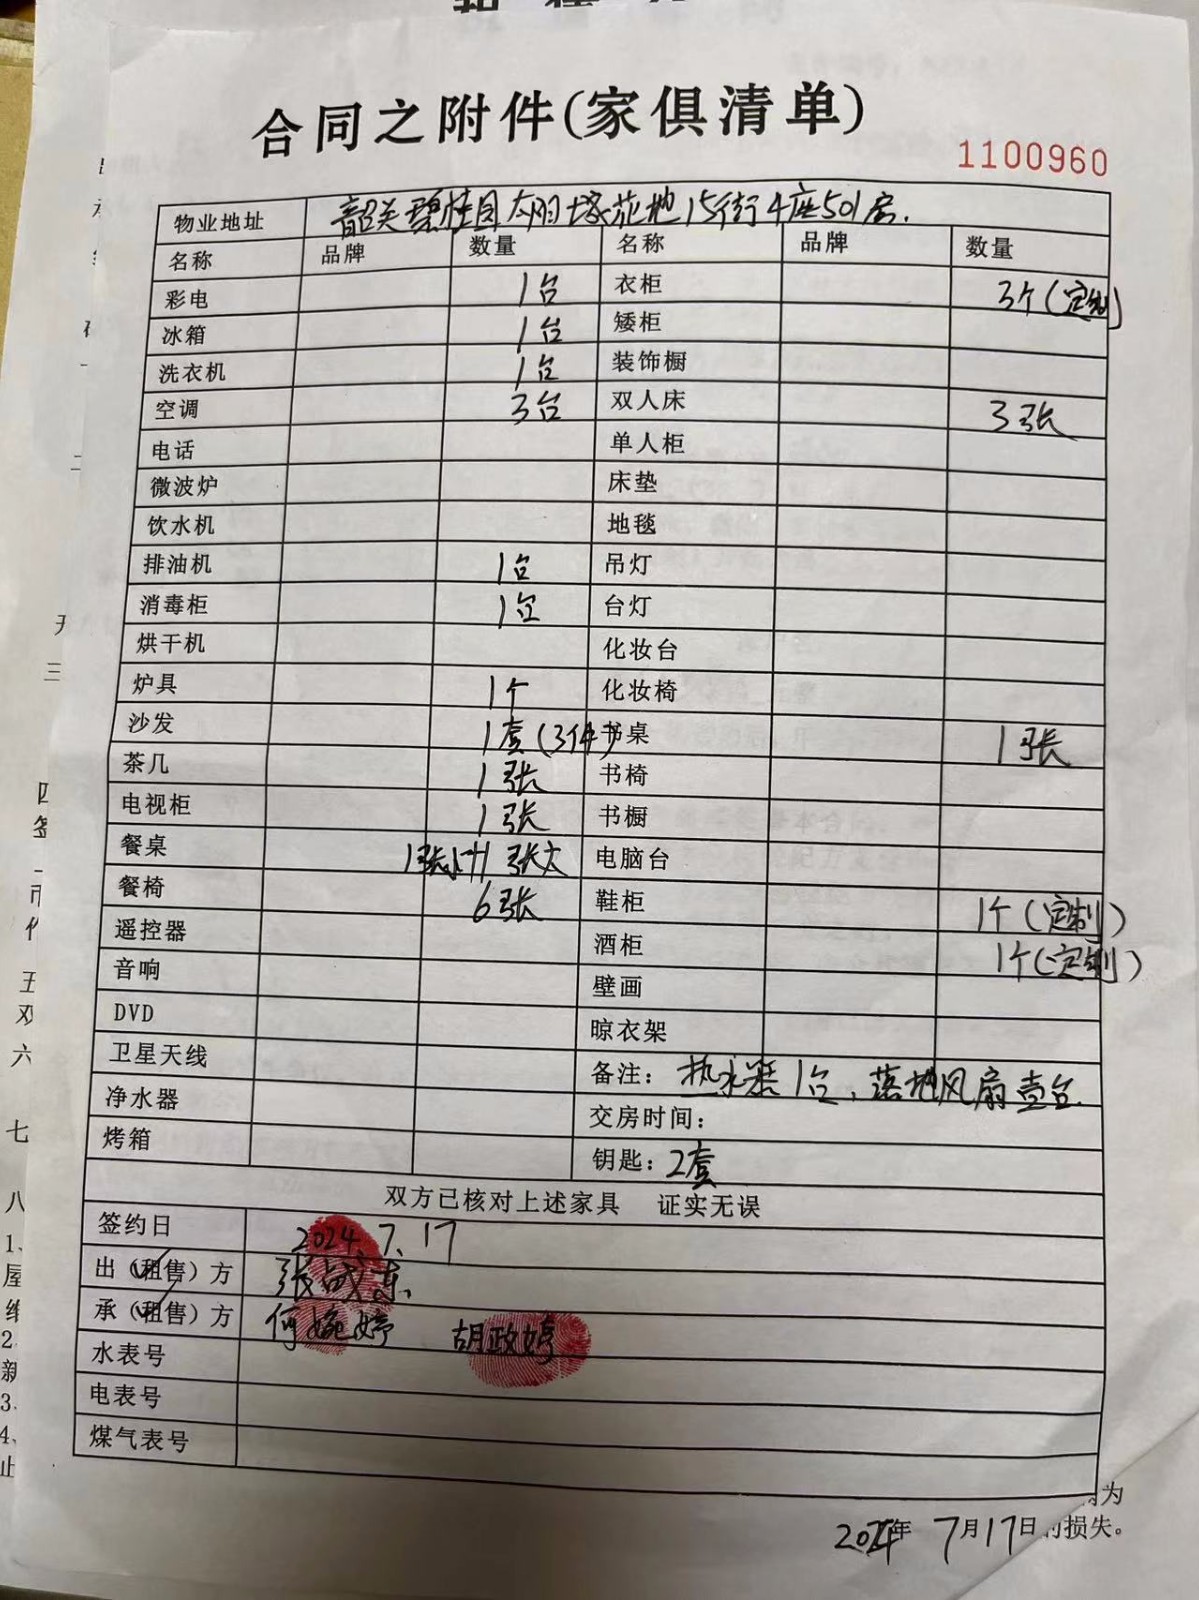 合同之附件(家俱清单)
1100960
物业地址 韶关碧桂园太阳城花地15街4座501房.
名称 品牌 数量 名称 品牌 数量
彩电 1台 衣柜 3个(定制)
冰箱 1台 矮柜
洗衣机 1台 装饰橱
空调 3台 双人床 3张
电话 单人柜
微波炉 床垫
饮水机 地毯
排油机 1台 吊灯
消毒柜 1台 台灯
烘干机 化妆台
炉具 1个 化妆椅
沙发 1套(3件) 书桌 1张
茶几 1张 书椅
电视柜 1张 书橱
餐桌 1张小+1张大 电脑台
餐椅 6张 鞋柜 1个(定制)
遥控器 酒柜 1个(定制)
音响 壁画
DVD 晾衣架
卫星天线 备注: 热水器1台、落地风扇壹台.
净水器 交房时间:
烤箱 钥匙: 2套
双方已核对上述家具 证实无误
签约日 2024.7.17
出(租售)方 张
承(租售)方 何婉婷 胡政婷
水表号
电表号
煤气表号
为
2024年7月17日 损失。